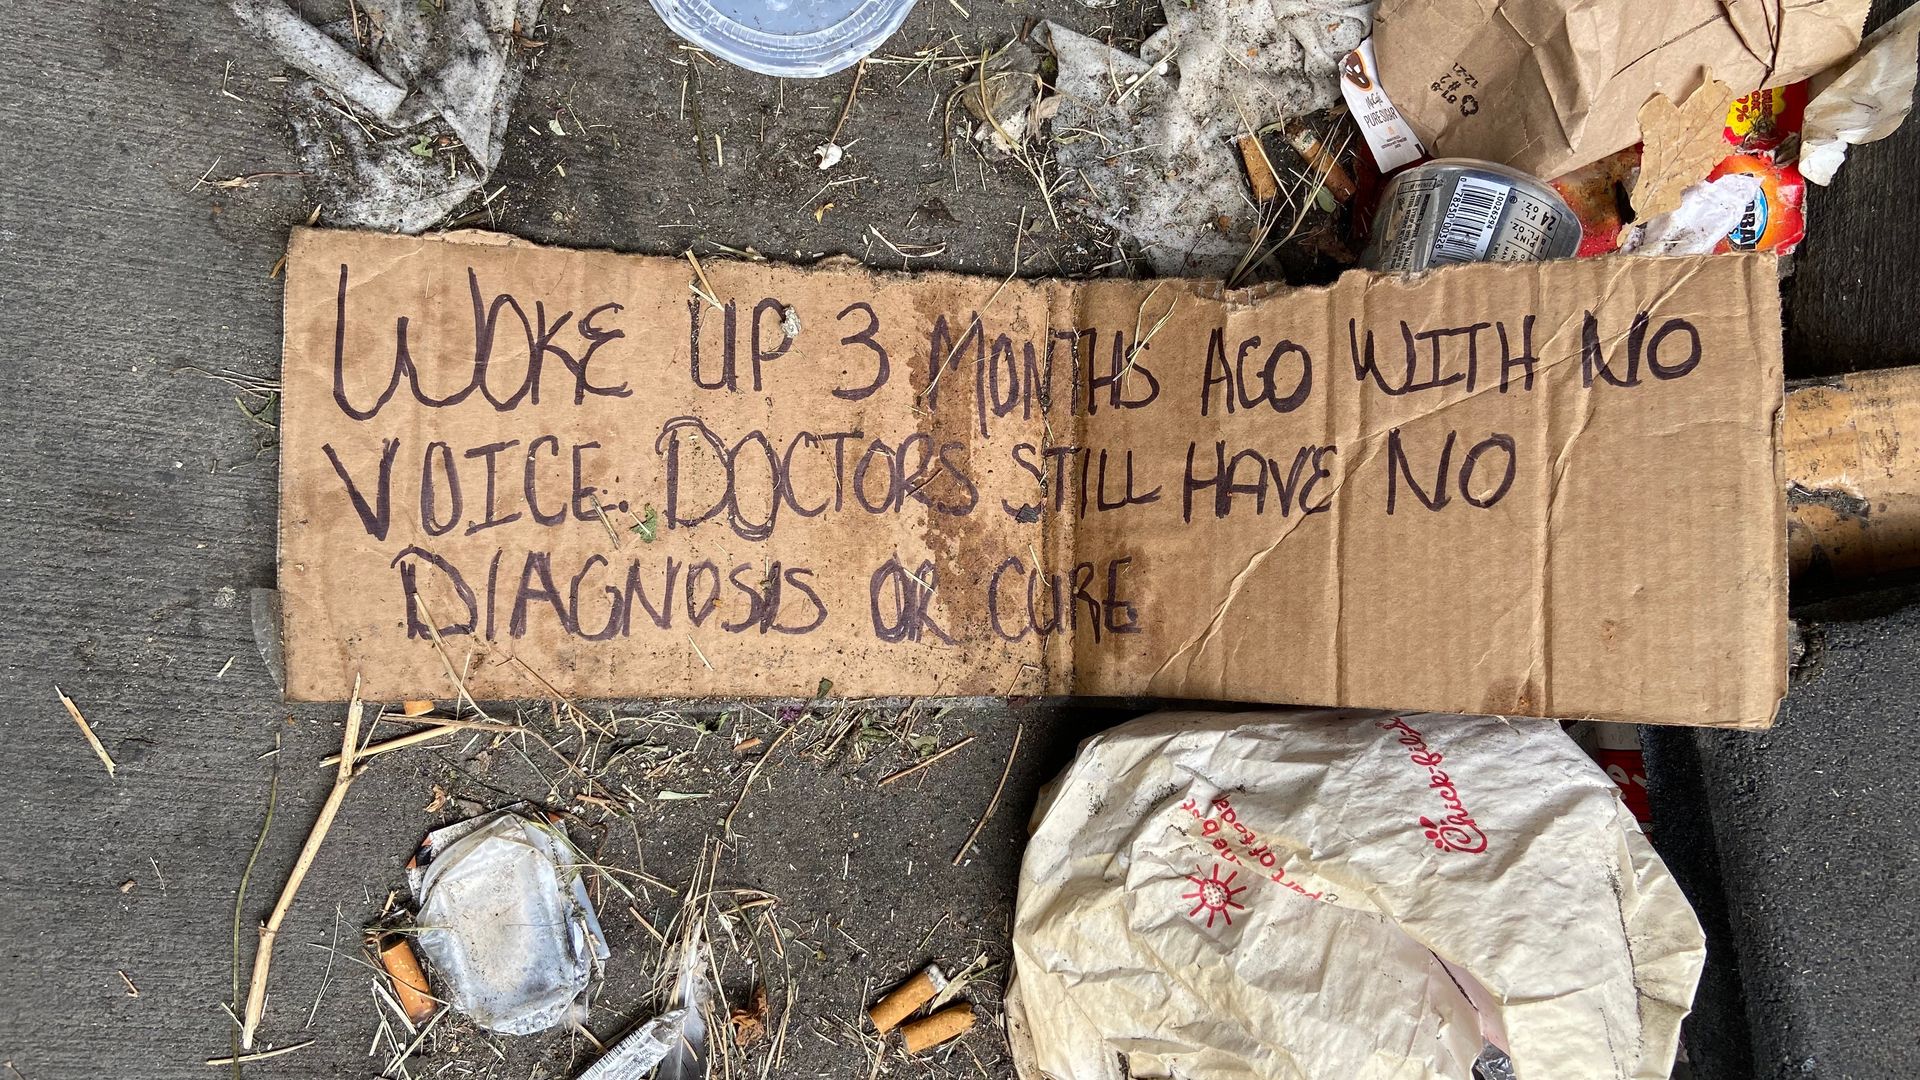 WOKE UP 3 MONTHS AGO WITH NO
VOICE. DOCTORS STILL HAVE NO
DIAGNOSIS OR CURE
McCafé
PURE SUGAR
#2
12-21
10026294
24 FL. OZ.
1 PINT
8 FL. OZ
Chick-fil-A
part of today